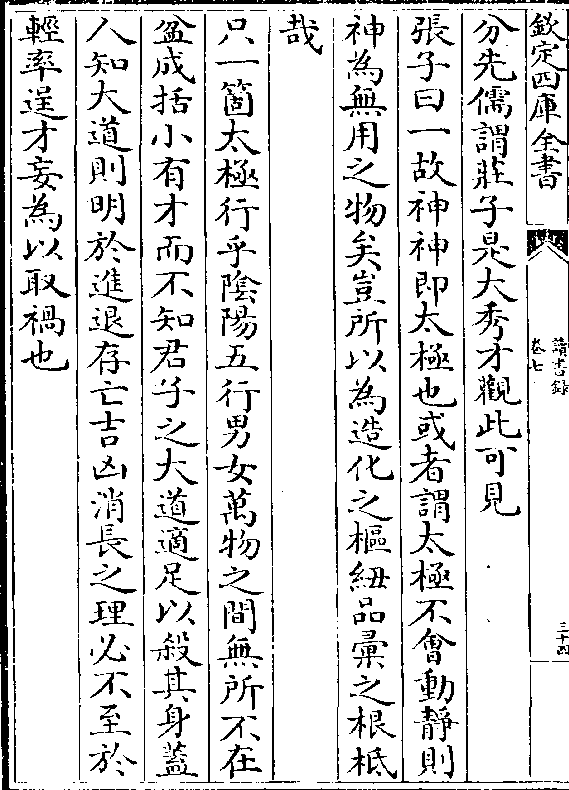 欽定四庫全書
讀書錄
卷七
三十四
分先儒謂莊子是大秀才觀此可見
張子曰一故神神即太極也或者謂太極不會動靜則
神為無用之物矣豈所以為造化之樞紐品彙之根柢
哉
只一箇太極行乎陰陽五行男女萬物之間無所不在
盆成括小有才而不知君子之大道適足以殺其身蓋
人知大道則明於進退存亡吉凶消長之理必不至於
輕率逞才妄為以取禍也